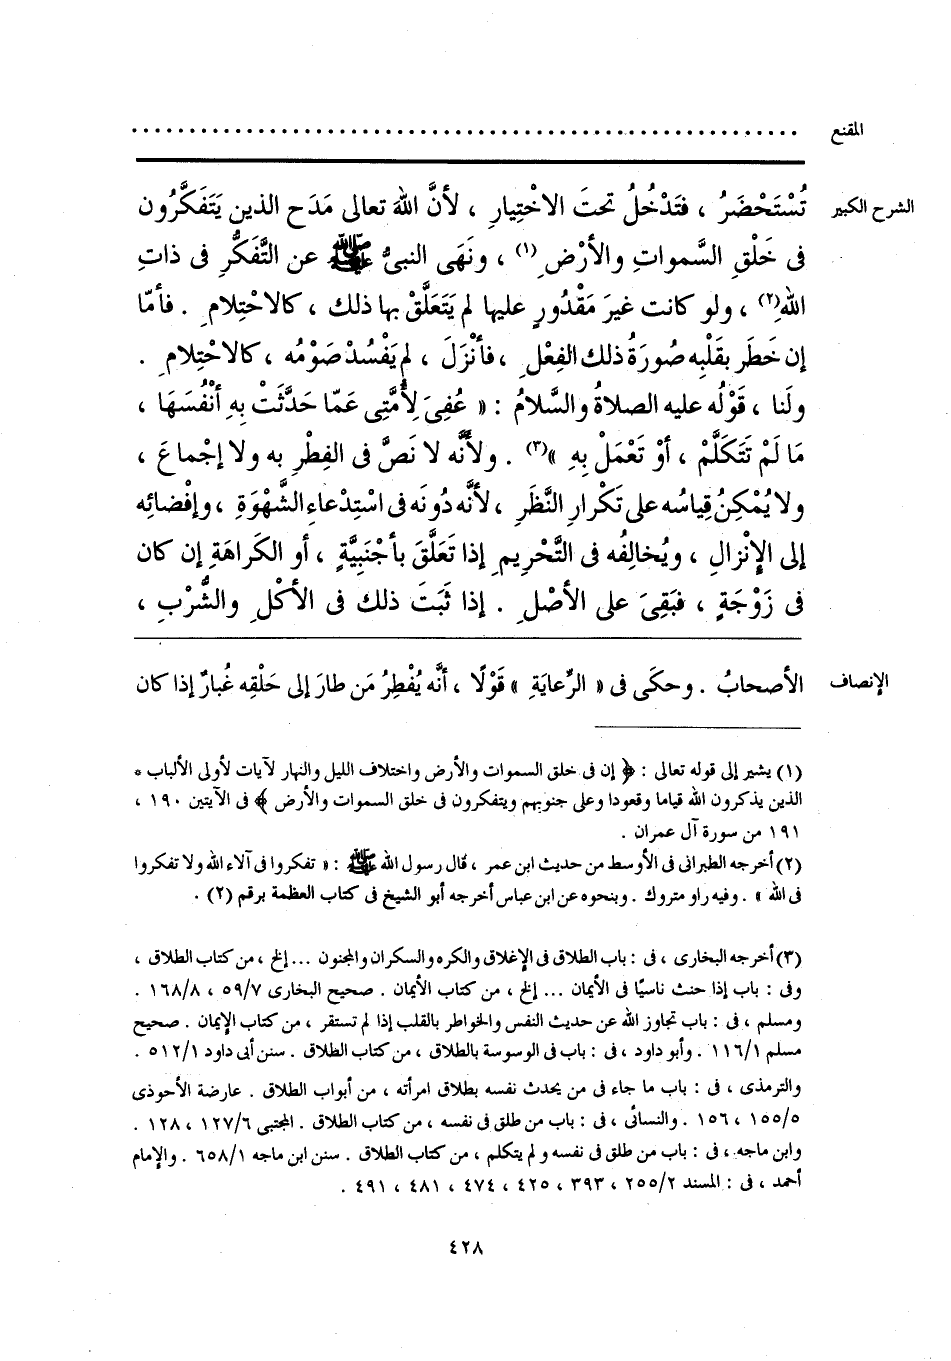 المقنع ................................................................
الشرح الكبير تُسْتَحْضَرُ ، فتَدْخُلُ تحتَ الاخْتِيارِ ، لأنَّ اللهَ تعالى مَدَح الذين يَتَفَكَّرُون
فى خَلْقِ السَّمواتِ والأرْضِ(١) ، ونَهَى النبىُّ ﷺ عن التَّفَكُّرِ فى ذاتِ
اللهِ(٢) ، ولو كانت غيرَ مَقْدُورٍ عليها لم يَتَعَلَّقْ بها ذلك ، كالاحْتِلامِ . فأمّا
إن خَطَر بقَلْبِه صُورَةُ ذلك الفِعْلِ ، فأنْزَلَ ، لم يَفْسُدْ صَوْمُه ، كالاحْتِلامِ .
ولَنا ، قَوْلُه عليه الصلاةُ والسَّلامُ : « عُفِىَ لِأُمَّتِى عَمّا حَدَّثَتْ بِهِ أنْفُسَهَا ،
مَا لَمْ تَتَكَلَّمْ ، أوْ تَعْمَلْ بِهِ »(٣) . ولأنَّه لا نَصَّ فى الفِطْرِ به ولا إجْماعَ ،
ولا يُمْكِنُ قِياسُه على تَكْرارِ النَّظَرِ ، لأنَّه دُونَه فى اسْتِدْعاءِ الشَّهْوَةِ ، وإفْضائِه
إلى الإِنْزالِ ، ويُخالِفُه فى التَّحْرِيمِ إذا تَعَلَّقَ بأجْنَبِيَّةٍ ، أو الكَراهَةِ إن كان
فى زَوْجَةٍ ، فبَقِىَ على الأصْلِ . إذا ثَبَتَ ذلك فى الأكْلِ والشُّرْبِ ،
الإنصاف الأصحابُ . وحكَى فى « الرِّعايَةِ » قَوْلًا ، أنَّه يُفْطِرُ مَن طارَ إلى حَلْقِه غُبارٌ إذا كان
(١) يشير إلى قوله تعالى : ﴿ إن فى خلق السموات والأرض واختلاف الليل والنهار لآيات لأولى الألباب *
الذين يذكرون الله قياما وقعودا وعلى جنوبهم ويتفكرون فى خلق السموات والأرض ﴾ فى الآيتين ١٩٠ ،
١٩١ من سورة آل عمران .
(٢) أخرجه الطبرانى فى الأوسط من حديث ابن عمر ، قال رسول الله ﷺ : « تفكروا فى آلاء الله ولا تفكروا
فى الله » . وفيه راو متروك . وبنحوه عن ابن عباس أخرجه أبو الشيخ فى كتاب العظمة برقم (٢) .
(٣) أخرجه البخارى ، فى : باب الطلاق فى الإغلاق والكره والسكران والمجنون ... إلخ ، من كتاب الطلاق ،
وفى : باب إذا حنث ناسيًا فى الأيمان ... إلخ ، من كتاب الأيمان . صحيح البخارى ٥٩/٧ ، ١٦٨/٨ .
ومسلم ، فى : باب تجاوز الله عن حديث النفس والخواطر بالقلب إذا لم تستقر ، من كتاب الإيمان . صحيح
مسلم ١١٦/١ . وأبو داود ، فى : باب فى الوسوسة بالطلاق ، من كتاب الطلاق . سنن أبى داود ٥١٢/١ .
والترمذى ، فى : باب ما جاء فى من يحدث نفسه بطلاق امرأته ، من أبواب الطلاق . عارضة الأحوذى
١٥٥/٥ ، ١٥٦ . والنسائى ، فى : باب من طلق فى نفسه ، من كتاب الطلاق . المجتبى ١٢٧/٦ ، ١٢٨ .
وابن ماجه ، فى : باب من طلق فى نفسه ولم يتكلم ، من كتاب الطلاق . سنن ابن ماجه ٦٥٨/١ . والإمام
أحمد ، فى : المسند ٢٥٥/٢ ، ٣٩٣ ، ٤٢٥ ، ٤٧٤ ، ٤٨١ ، ٤٩١ .
٤٢٨